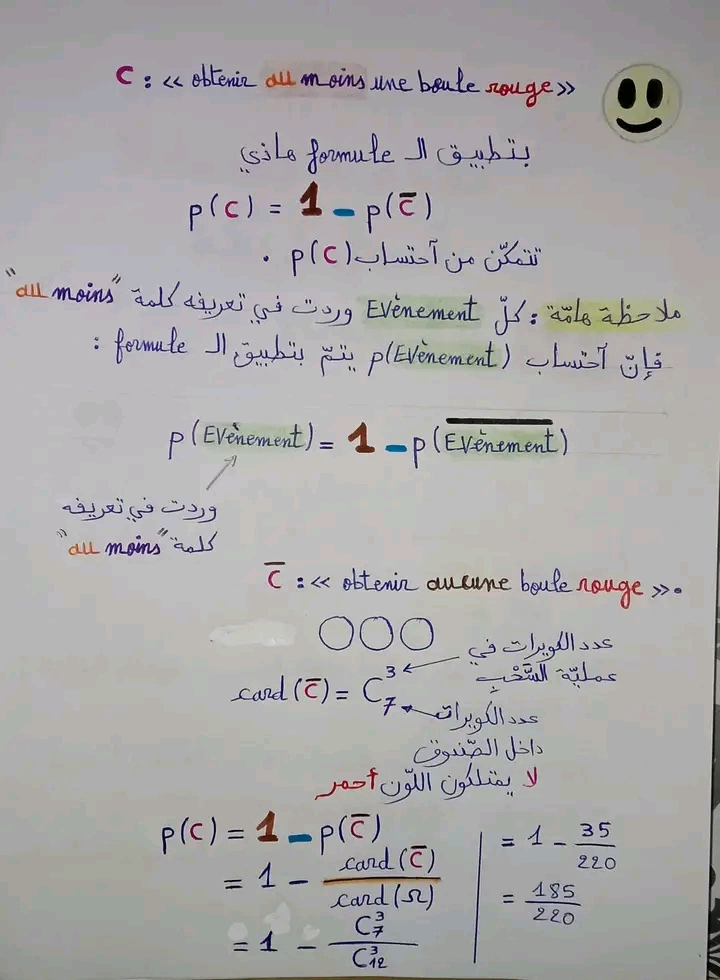 C : << obtenir au moins une boule rouge >>
بتطبيق الـ formule هاذي
p(C) = 1 - p(C̅)
تتمكّن من آحتساب p(C) .
ملاحظة هامّة : كلّ Evènement وردت في تعريفه كلمة "au moins"
فإنّ آحتساب p(Evènement) يتمّ بتطبيق الـ formule :
p(Evènement) = 1 - p(E̅v̅è̅n̅e̅m̅e̅n̅t̅)
وردت في تعريفه
كلمة "au moins"
C̅ : << obtenir aucune boule rouge >>.
عدد الكويرات في
عمليّة السَّحْبِ
card(C̅) = C₇³
عدد الكويرات
داخل الصّندوق
لا يمتلكون اللّون أحمر
p(C) = 1 - p(C̅)
= 1 - card(C̅) / card(Ω)
= 1 - C₇³ / C₁₂³
= 1 - 35/220
= 185/220